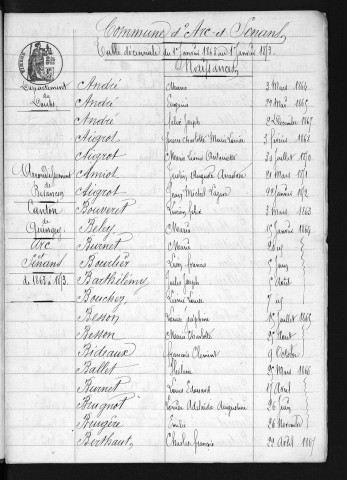 Commune d'Arc et Senans
Table décennale du 1er janvier 1863 au 1er janvier 1873.
Naissances
Département
du
Doubs
Arrondissement
de
Besançon
Canton
de
Quingey
Arc
et
Senans
de 1863 à 1873.
André Marie 3 Mars 1864
André Eugénie 29 Mai 1865
André Jules Joseph 22 Décembre 1867
Aigrot Jeanne Charlotte Marie Louise 3 février 1868
Aigrot Marie Léonie Antoinette 30 Juillet 1870
Amiot Justin Auguste 21 Mars 1871
Aigrot Jean Michel 22 Janvier 1872
Bouveret Félix 3 Mars 1863
Bely Marie 15 Janvier 1864
Burnet Marie
Bourlier Léon francis 5 Juin
Barthélémy Jules Joseph 5 Août
Bouchey Louise
Besson Josephine 15 Juillet 1865
Besson Marie 25 Août
Bideaux françois Clément 9 Octobre
Ballet 25 Mars 1866
Burnet Louis Edouard 17 Avril
Brugnot Louise Adélaïde Augustine 26 Juin
Brugère Emilie 26 Novembre
Berthaut Charles françois 22 Août 1867